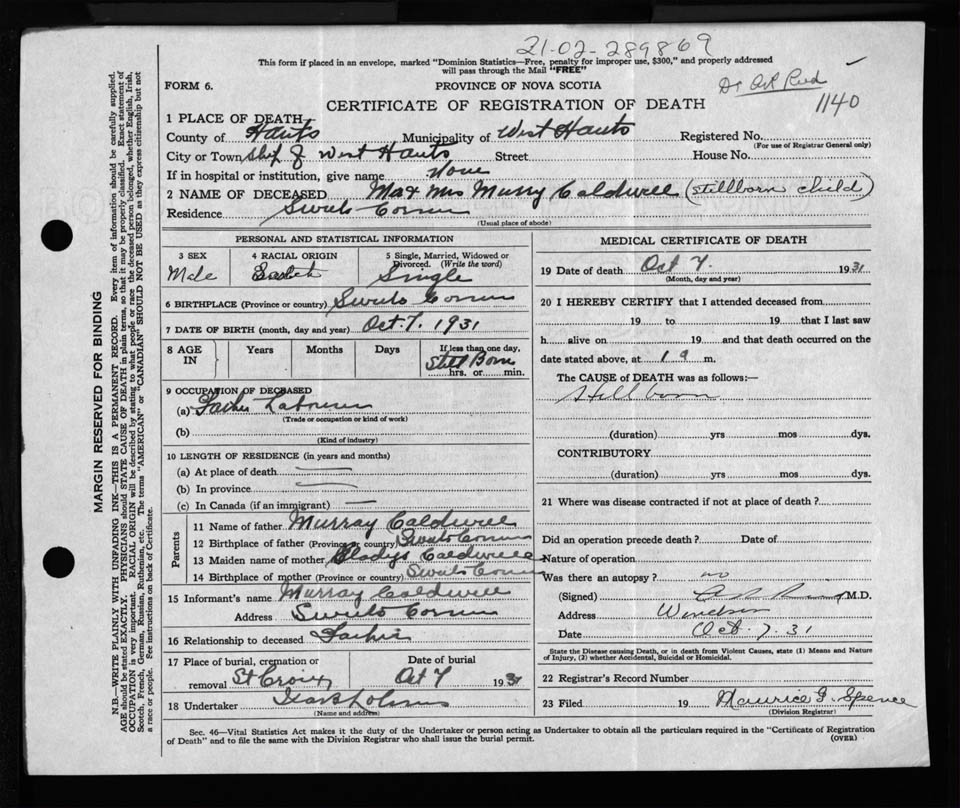 21-02-289869
This form if placed in an envelope, marked "Dominion Statistics—Free, penalty for improper use, $300," and properly addressed
will pass through the Mail "FREE"
FORM 6.
PROVINCE OF NOVA SCOTIA
Dr
1140
CERTIFICATE OF REGISTRATION OF DEATH
1 PLACE OF DEATH
County of Hants Municipality of West Hants Registered No.
(For use of Registrar General only)
City or Town West Hants Street House No.
If in hospital or institution, give name None
2 NAME OF DECEASED Mrs Murry Caldwell (stillborn child)
Residence Corner
(Usual place of abode)
PERSONAL AND STATISTICAL INFORMATION
3 SEX
Male
4 RACIAL ORIGIN
5 Single, Married, Widowed or
Divorced. (Write the word)
Single
6 BIRTHPLACE (Province or country) Corner
7 DATE OF BIRTH (month, day and year) Oct. 7. 1931
8 AGE IN
Years Months Days
If less than one day,
Still Born
hrs. or min.
9 OCCUPATION OF DECEASED
(a) Father Labourer
(Trade or occupation or kind of work)
(b)
(Kind of industry)
10 LENGTH OF RESIDENCE (in years and months)
(a) At place of death
(b) In province
(c) In Canada (if an immigrant)
Parents
11 Name of father Murray Caldwell
12 Birthplace of father (Province or country) Corner
13 Maiden name of mother Gladys Caldwell
14 Birthplace of mother (Province or country) Corner
15 Informant's name Murray Caldwell
Address Corner
16 Relationship to deceased Father
17 Place of burial, cremation or
removal St Croix
Date of burial
Oct 7 1931
18 Undertaker
(Name and address)
MEDICAL CERTIFICATE OF DEATH
19 Date of death Oct 7. 1931
(Month, day and year)
20 I HEREBY CERTIFY that I attended deceased from
19 to 19 that I last saw
h alive on 19 and that death occurred on the
date stated above, at 1 a m.
The CAUSE of DEATH was as follows:—
Stillborn
(duration) yrs mos dys.
CONTRIBUTORY
(duration) yrs mos dys.
21 Where was disease contracted if not at place of death?
Did an operation precede death? Date of
Nature of operation
Was there an autopsy? no
(Signed) M.D.
Address Windsor
Date Oct. 7. 31
State the Disease causing Death, or in death from Violent Causes, state (1) Means and Nature
of Injury, (2) whether Accidental, Suicidal or Homicidal.
22 Registrar's Record Number
23 Filed 19 Maurice G. Spence
(Division Registrar)
Sec. 46—Vital Statistics Act makes it the duty of the Undertaker or person acting as Undertaker to obtain all the particulars required in the "Certificate of Registration
of Death" and to file the same with the Division Registrar who shall issue the burial permit.
(OVER)
MARGIN RESERVED FOR BINDING
N.B.—WRITE PLAINLY WITH UNFADING INK—THIS IS A PERMANENT RECORD. Every item of information should be carefully supplied.
AGE should be stated EXACTLY. PHYSICIANS should STATE CAUSE OF DEATH in plain terms, so that it may be properly classified. Exact statement of
OCCUPATION is very important. RACIAL ORIGIN will be described by stating to what people or race the deceased person belonged, whether English, Irish,
Scotch, French, German, Russian, Ruthenian, etc. The terms "AMERICAN" or "CANADIAN" SHOULD NOT BE USED as they express citizenship but not
a race or people. See instructions on back of Certificate.